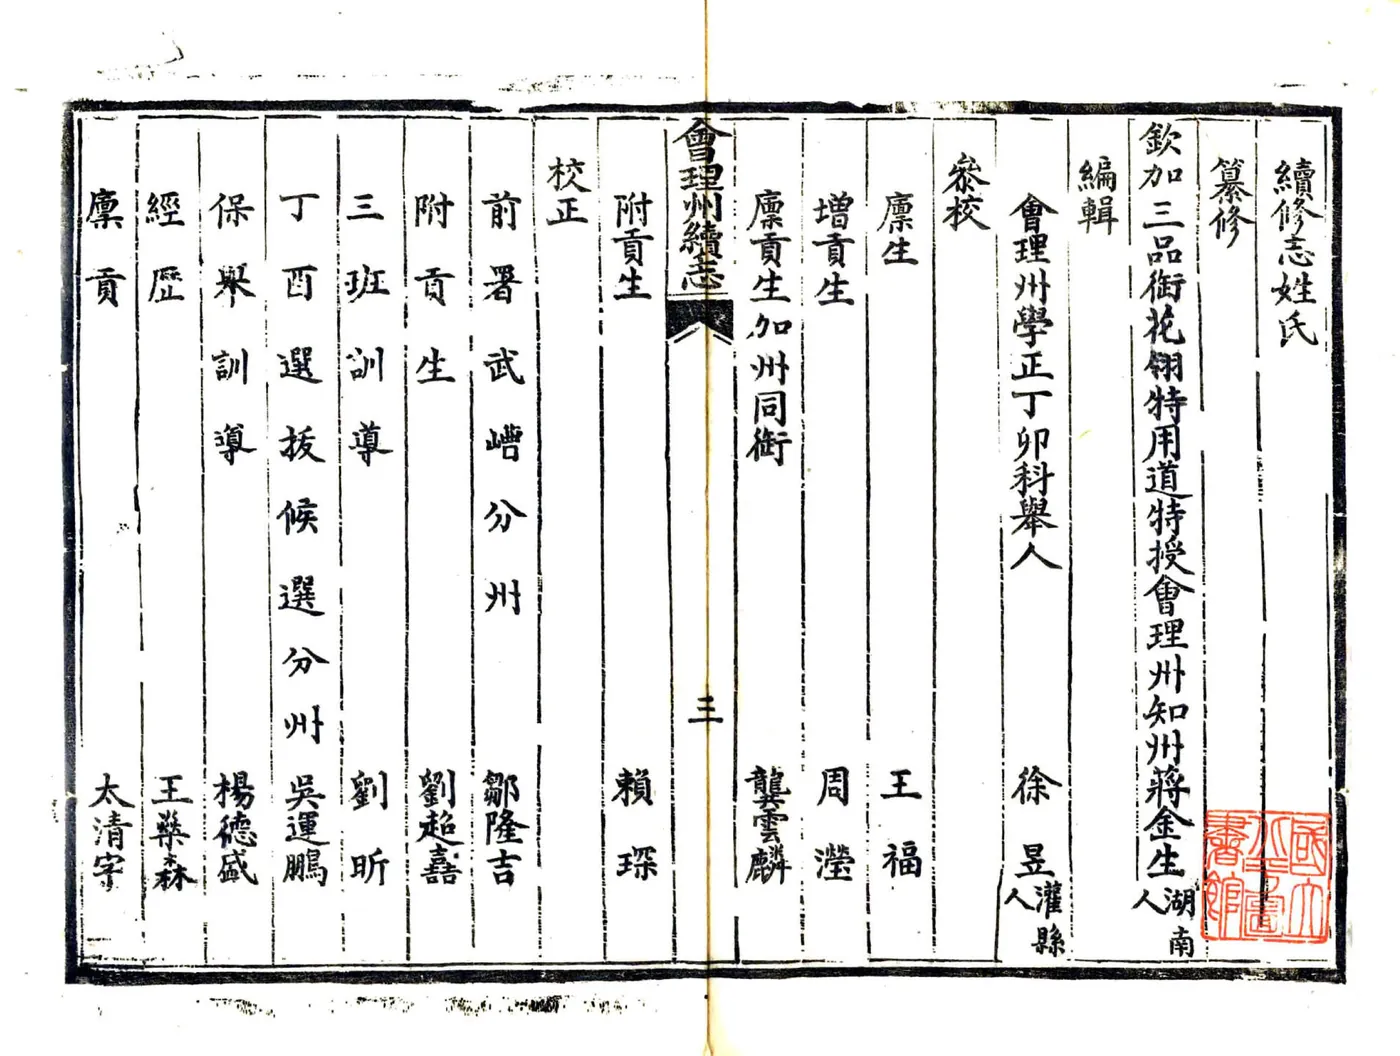 續修志姓氏
纂修
欽加三品銜花翎特用道特授會理州知州蔣金生湖南人
編輯
會理州學正丁卯科舉人 徐昱灌縣人
叅校
廩生 王福
增貢生 周瀅
廩貢生加州同銜 龔雲麟
會理州續志
三
附貢生 賴琛
校正
前署武嶆分州 鄒隆吉
附貢生 劉超嘉
三班訓導 劉昕
丁酉選拔候選分州 吳運鵬
保舉訓導 楊德盛
經歷 王藥森
廩貢 太清宇
國立北平圖書館